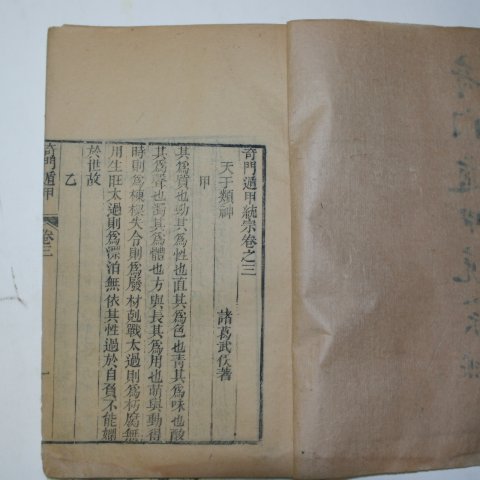 奇門遁甲統宗卷之三
諸葛武侯著
天干類神
甲
其為質也動其為性也直其為色也青其為味也酸
其為聲也濁其為體也方與長其為用也萌與動得
時則為棟樑失令則為廢材剋戰太過則為朽腐無
用生旺太過則為漂泊無依其性過於自負不能嫻
於世故
乙
奇門遁甲
卷三
一